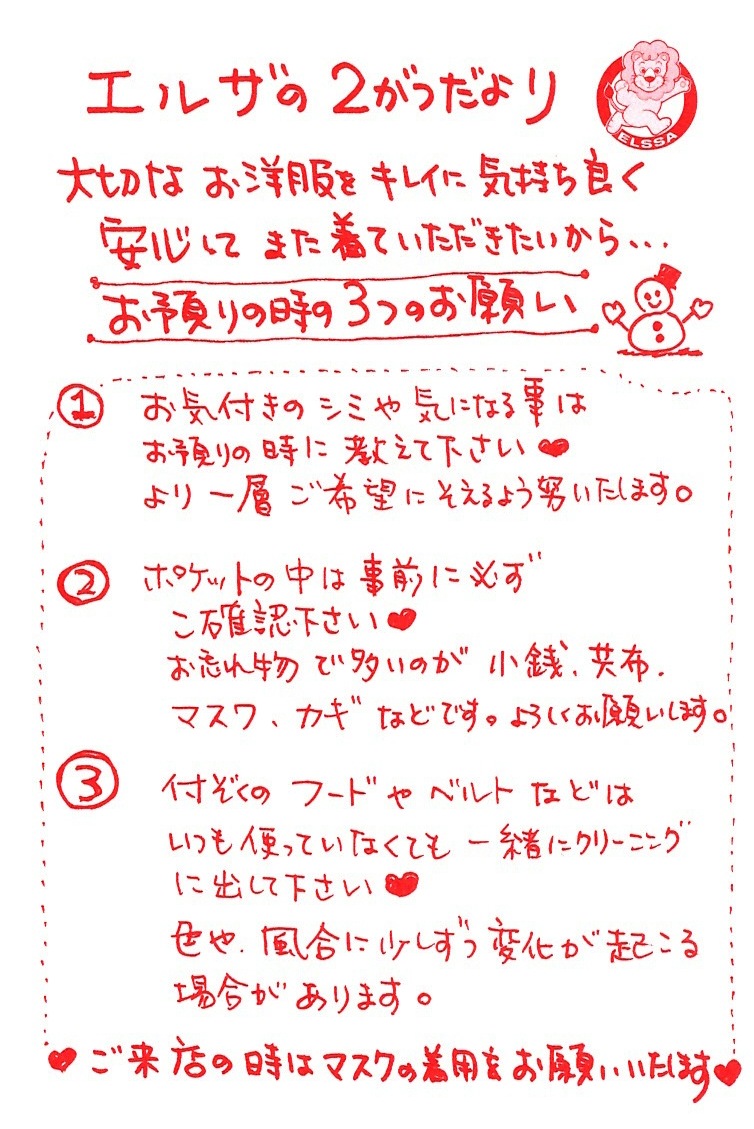 エルザの2がつだより
ELSSA
大切な お洋服を キレイに 気持ち良く
安心して また 着ていただきたいから...
お預りの時の3つのお願い
① お気付きの シミや 気になる事は
お預りの時に 教えて下さい♥
より一層 ご希望に そえるよう努いたします。
② ポケットの中は 事前に必ず
ご確認下さい♥
お忘れ物で多いのが 小銭、共布、
マスク、カギ などです。よろしくお願いします。
③ 付ぞくの フードや ベルト などは
いつも使っていなくても 一緒にクリーニング
に出して下さい♥
色や、風合に少しずつ変化が起こる
場合が あります。
♥ご来店の時はマスクの着用をお願いいたします♥